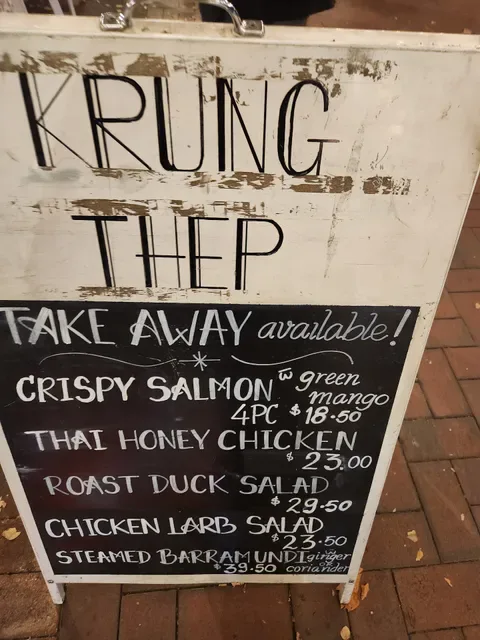 KRUNG
THEP
TAKE AWAY available!
CRISPY SALMON w̄ green
mango
4PC $18.50
THAI HONEY CHICKEN
$23.00
ROAST DUCK SALAD
$29.50
CHICKEN LARB SALAD
$23.50
STEAMED BARRAMUNDI w̄ ginger
$39.50 or coriander